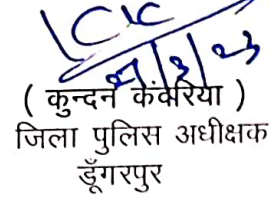 ( कुन्दन कंवरिया )
जिला पुलिस अधीक्षक
डूँगरपुर